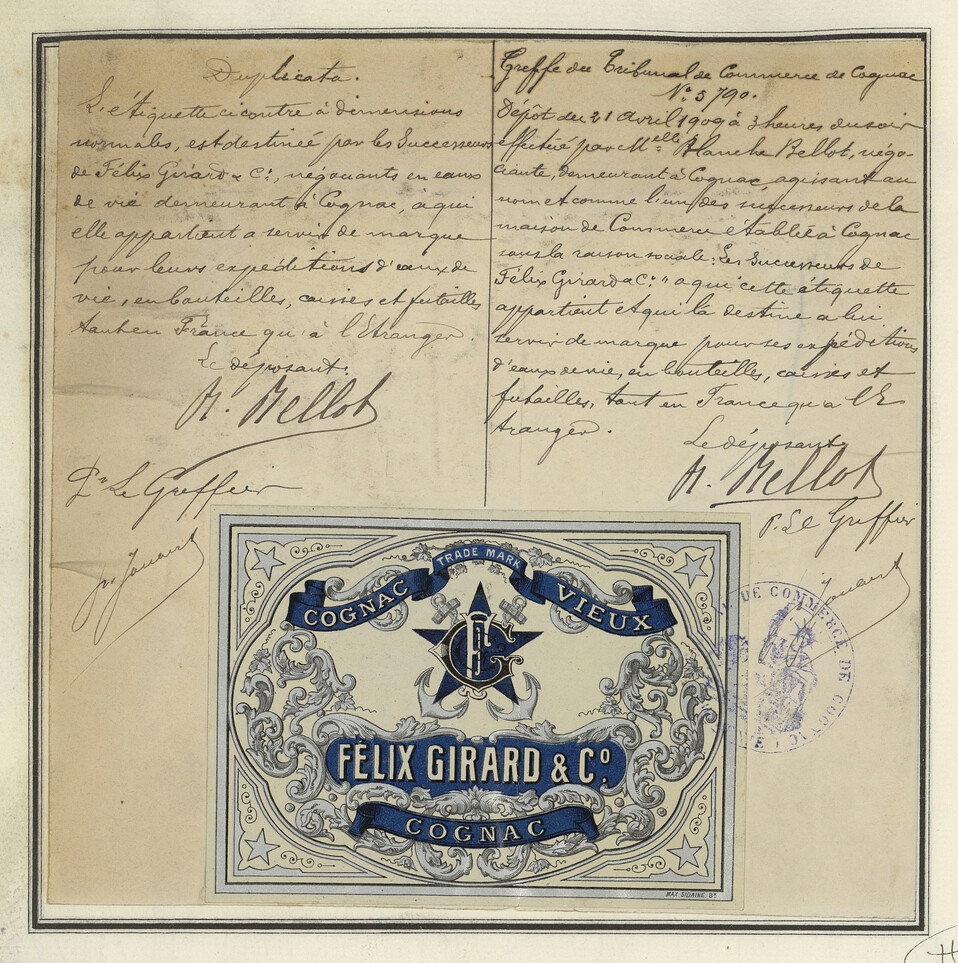 Duplicata.
L'étiquette ci contre à dimensions
normales, est destinée par les Successeurs
de Félix Girard & Cº, négociants en eaux
de vie demeurant à Cognac, à qui
elle appartient a servir de marque
pour leurs expéditions d'eaux de
vie, en bouteilles, caisses et futailles
tant en France qu'à l'Etranger.
Le déposant.
Bellot
Pr Le Greffier
Greffe du Tribunal de Commerce de Cognac
Nº 5790.
Dépôt du 21 avril 1909 à 3 heures du soir
effectué par Melle Blanche Bellot, négo-
ciante, demeurant à Cognac, agissant au
nom et comme l'un des successeurs de la
maison de Commerce établie à Cognac
sous la raison sociale: Les Successeurs de
Félix Girard & Cº" a qui cette étiquette
appartient et qui la destine a lui
servir de marque pour ses expéditions
d'eaux de vie, en bouteilles, caisses et
futailles, tant en France qu'a l'E
tranger.
Le déposant
Bellot
P. Le Greffier
TRADE MARK
COGNAC VIEUX
FÉLIX GIRARD & Cº.
COGNAC
MAX SIDAINE, Bx
DE COMMERCE DE COGNAC